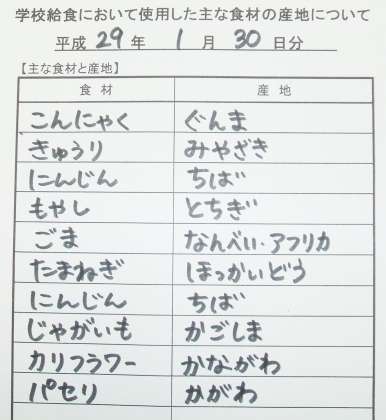 学校給食において使用した主な食材の産地について
平成 29 年 1 月 30 日分
【主な食材と産地】
食材 産地
こんにゃく ぐんま
きゅうり みやざき
にんじん ちば
もやし とちぎ
ごま なんべい・アフリカ
たまねぎ ほっかいどう
にんじん ちば
じゃがいも かごしま
カリフラワー かながわ
パセリ かがわ